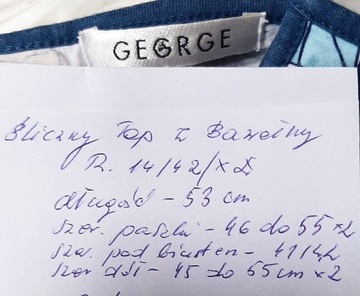 GEORGE
śliczny Top z Bawełny
R. 14/42/XL
długość - 53 cm
szer. paszki - 46 do 55 x2
szer. pod biustem - 41/42
szer dół - 45 do 55cm x2